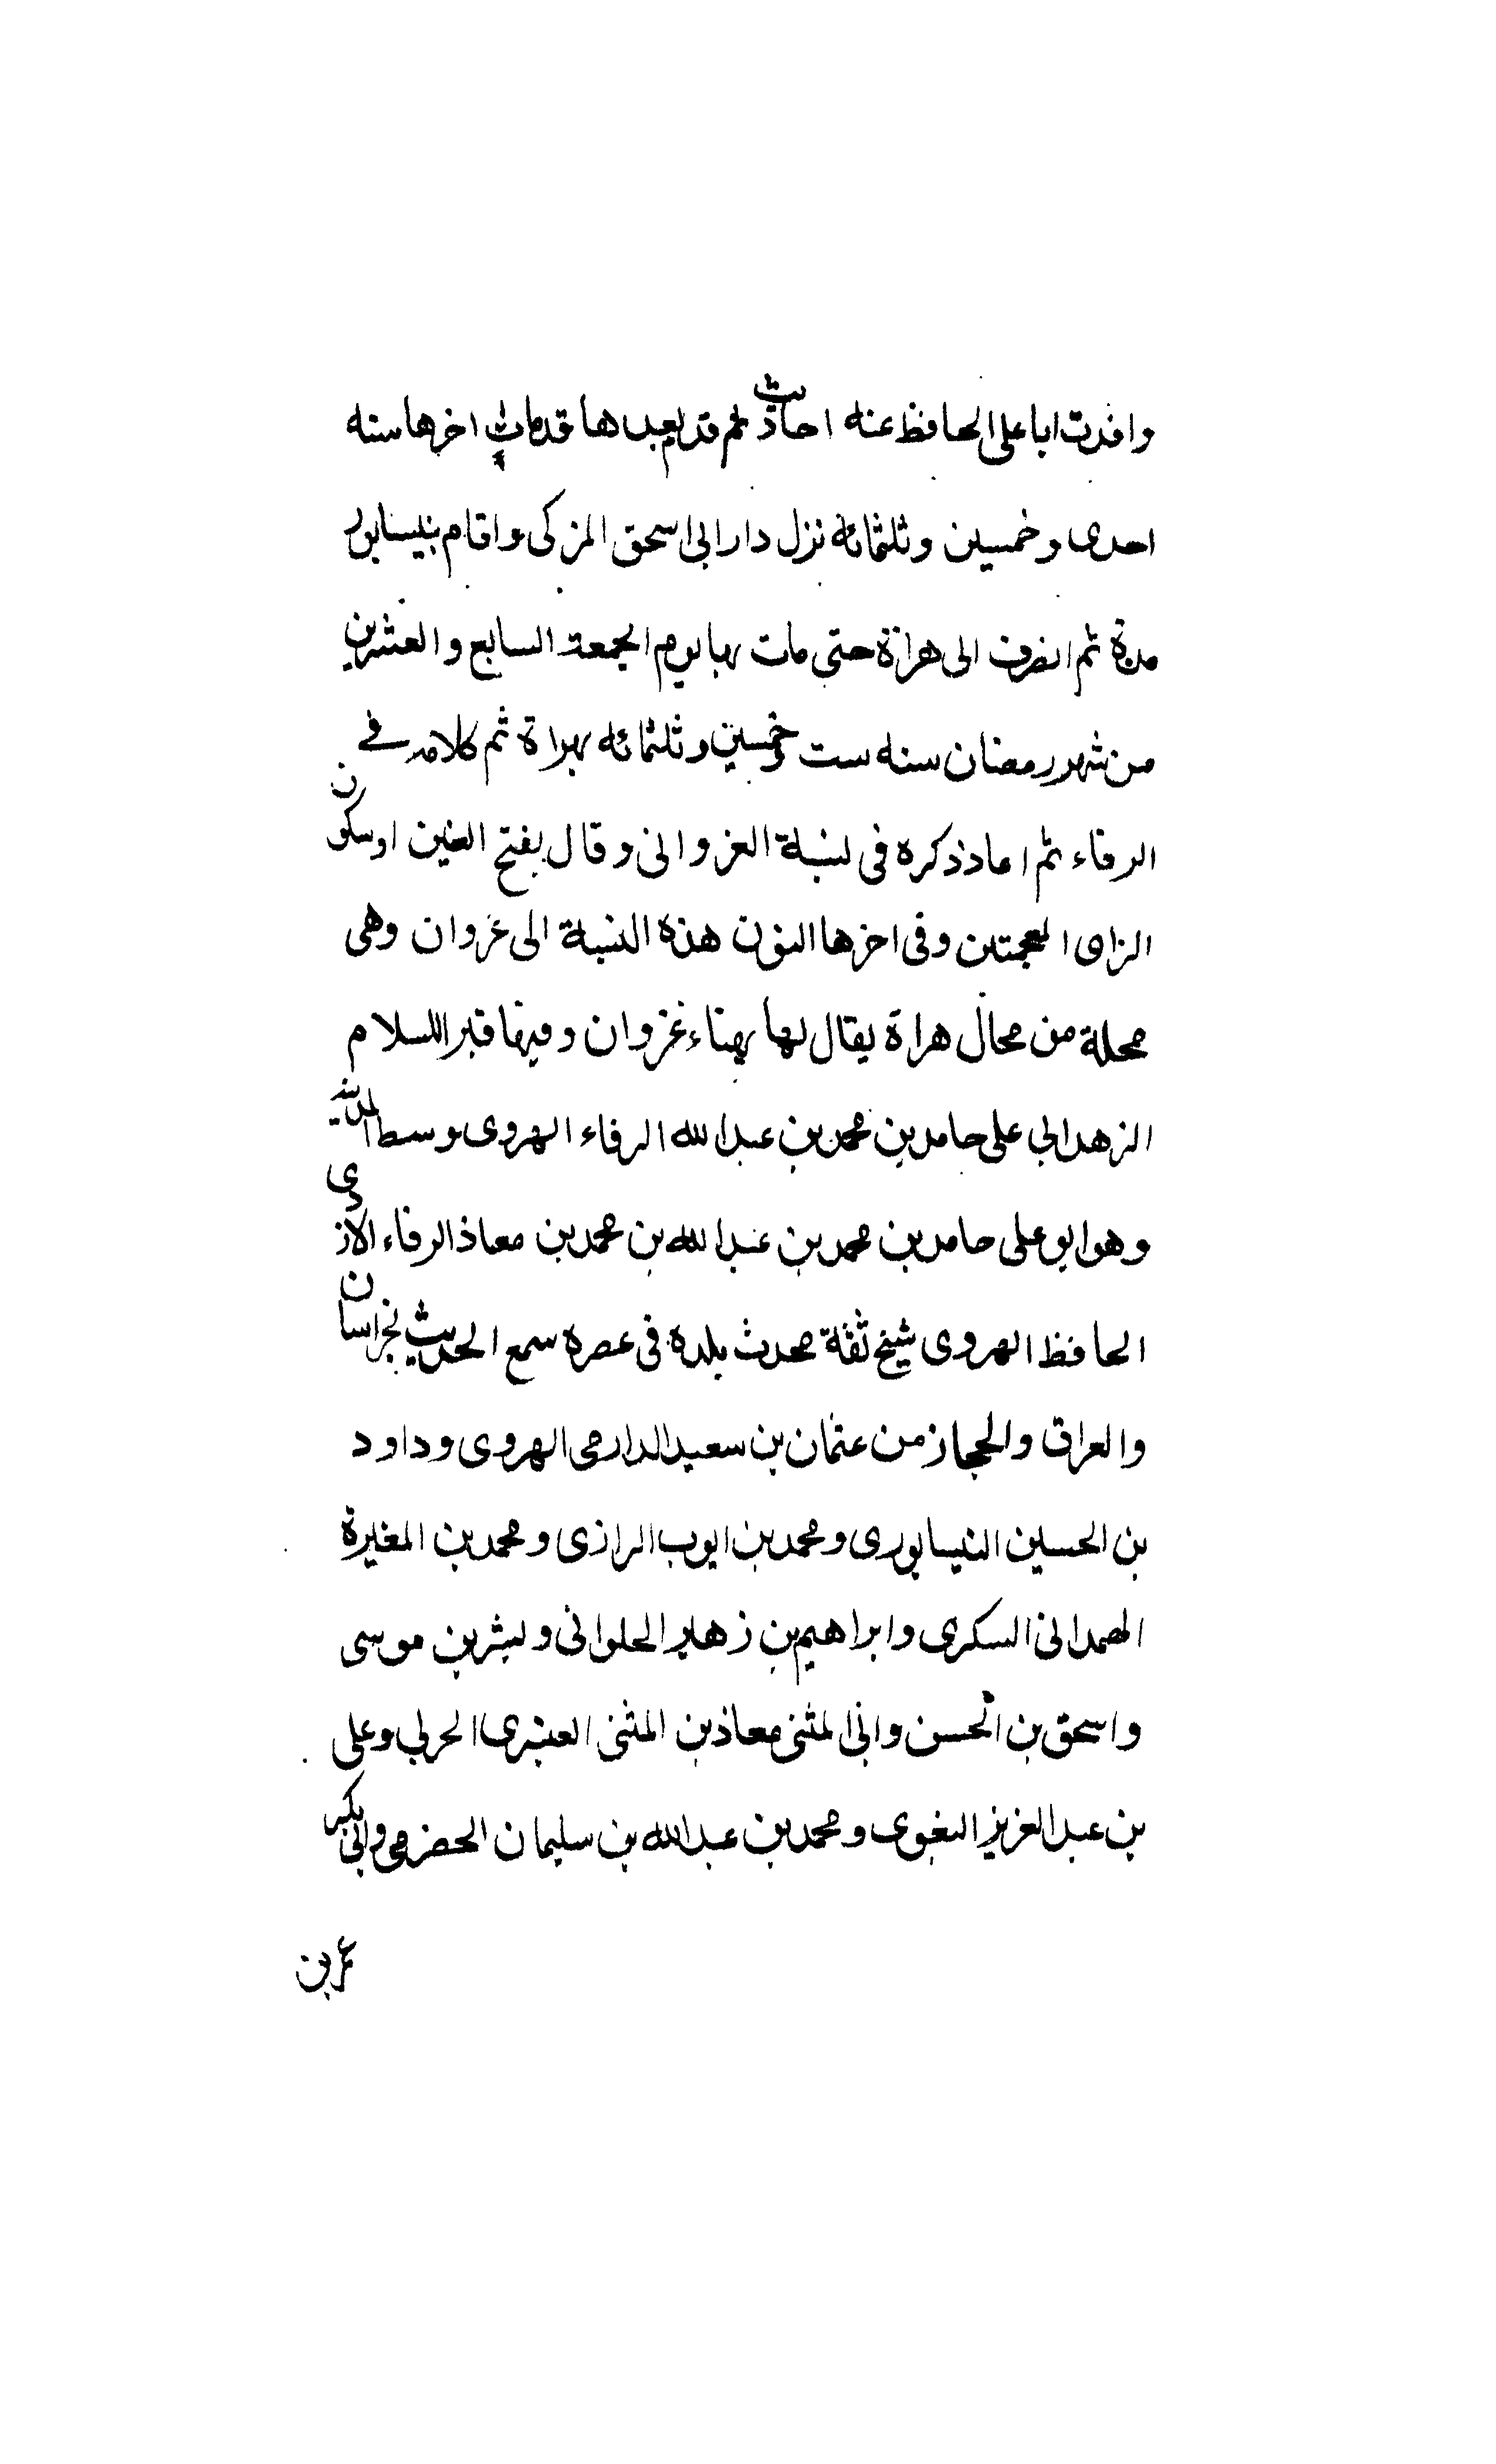 وافدت ابا على الحافظ عنه احاديث ثم قدم بعدها قدمات اخرها سنه
احدى وخمسين وثلثمائة نزل دار ابى اسحق المزكى واقام بنيسابور
مدة ثم انصرف الى هراة حتى مات بها يوم الجمعة السابع والعشرين
من شهر رمضان سنه ست وخمسين وثلثمائه بهراة ثم كلامه فے
الرفاء ثم اعاد ذكره فى نسبة الغزوانى وقال بفتح الغين اوسكون
الزاى المعجمتين وفى اخرها النون هذه النسبة الى غزوان وهى
محلة من محال هراة يقال لها بهناء غزوان وفيها قبر السلام
الزهد ابي على حامد بن محمد بن عبد الله الرفاء الهروى وسط المدينة
وهو ابو على حامد بن محمد بن عبد الله بن محمد بن معاذ الرفاء الازدى
الحافظ الهروى شيخ ثقة محدث بلده فى عصره سمع الحديث بخراسان
والعراق والحجاز من عثمان بن سعيد الدارمى الهروى وداود
بن الحسين النيسابورى ومحمد بن ايوب الرازى ومحمد بن المغيرة
الهمدانى السكرى وابراهيم بن زهير الحلوانى وبشر بن موسى
واسحق بن الحسن وابى المثنى معاذ بن المثنى العنبرى الحربي وعلى
بن عبد العزيز البغوى ومحمد بن عبد الله بن سليمان الحضرمى وابى بكر
عمر بن